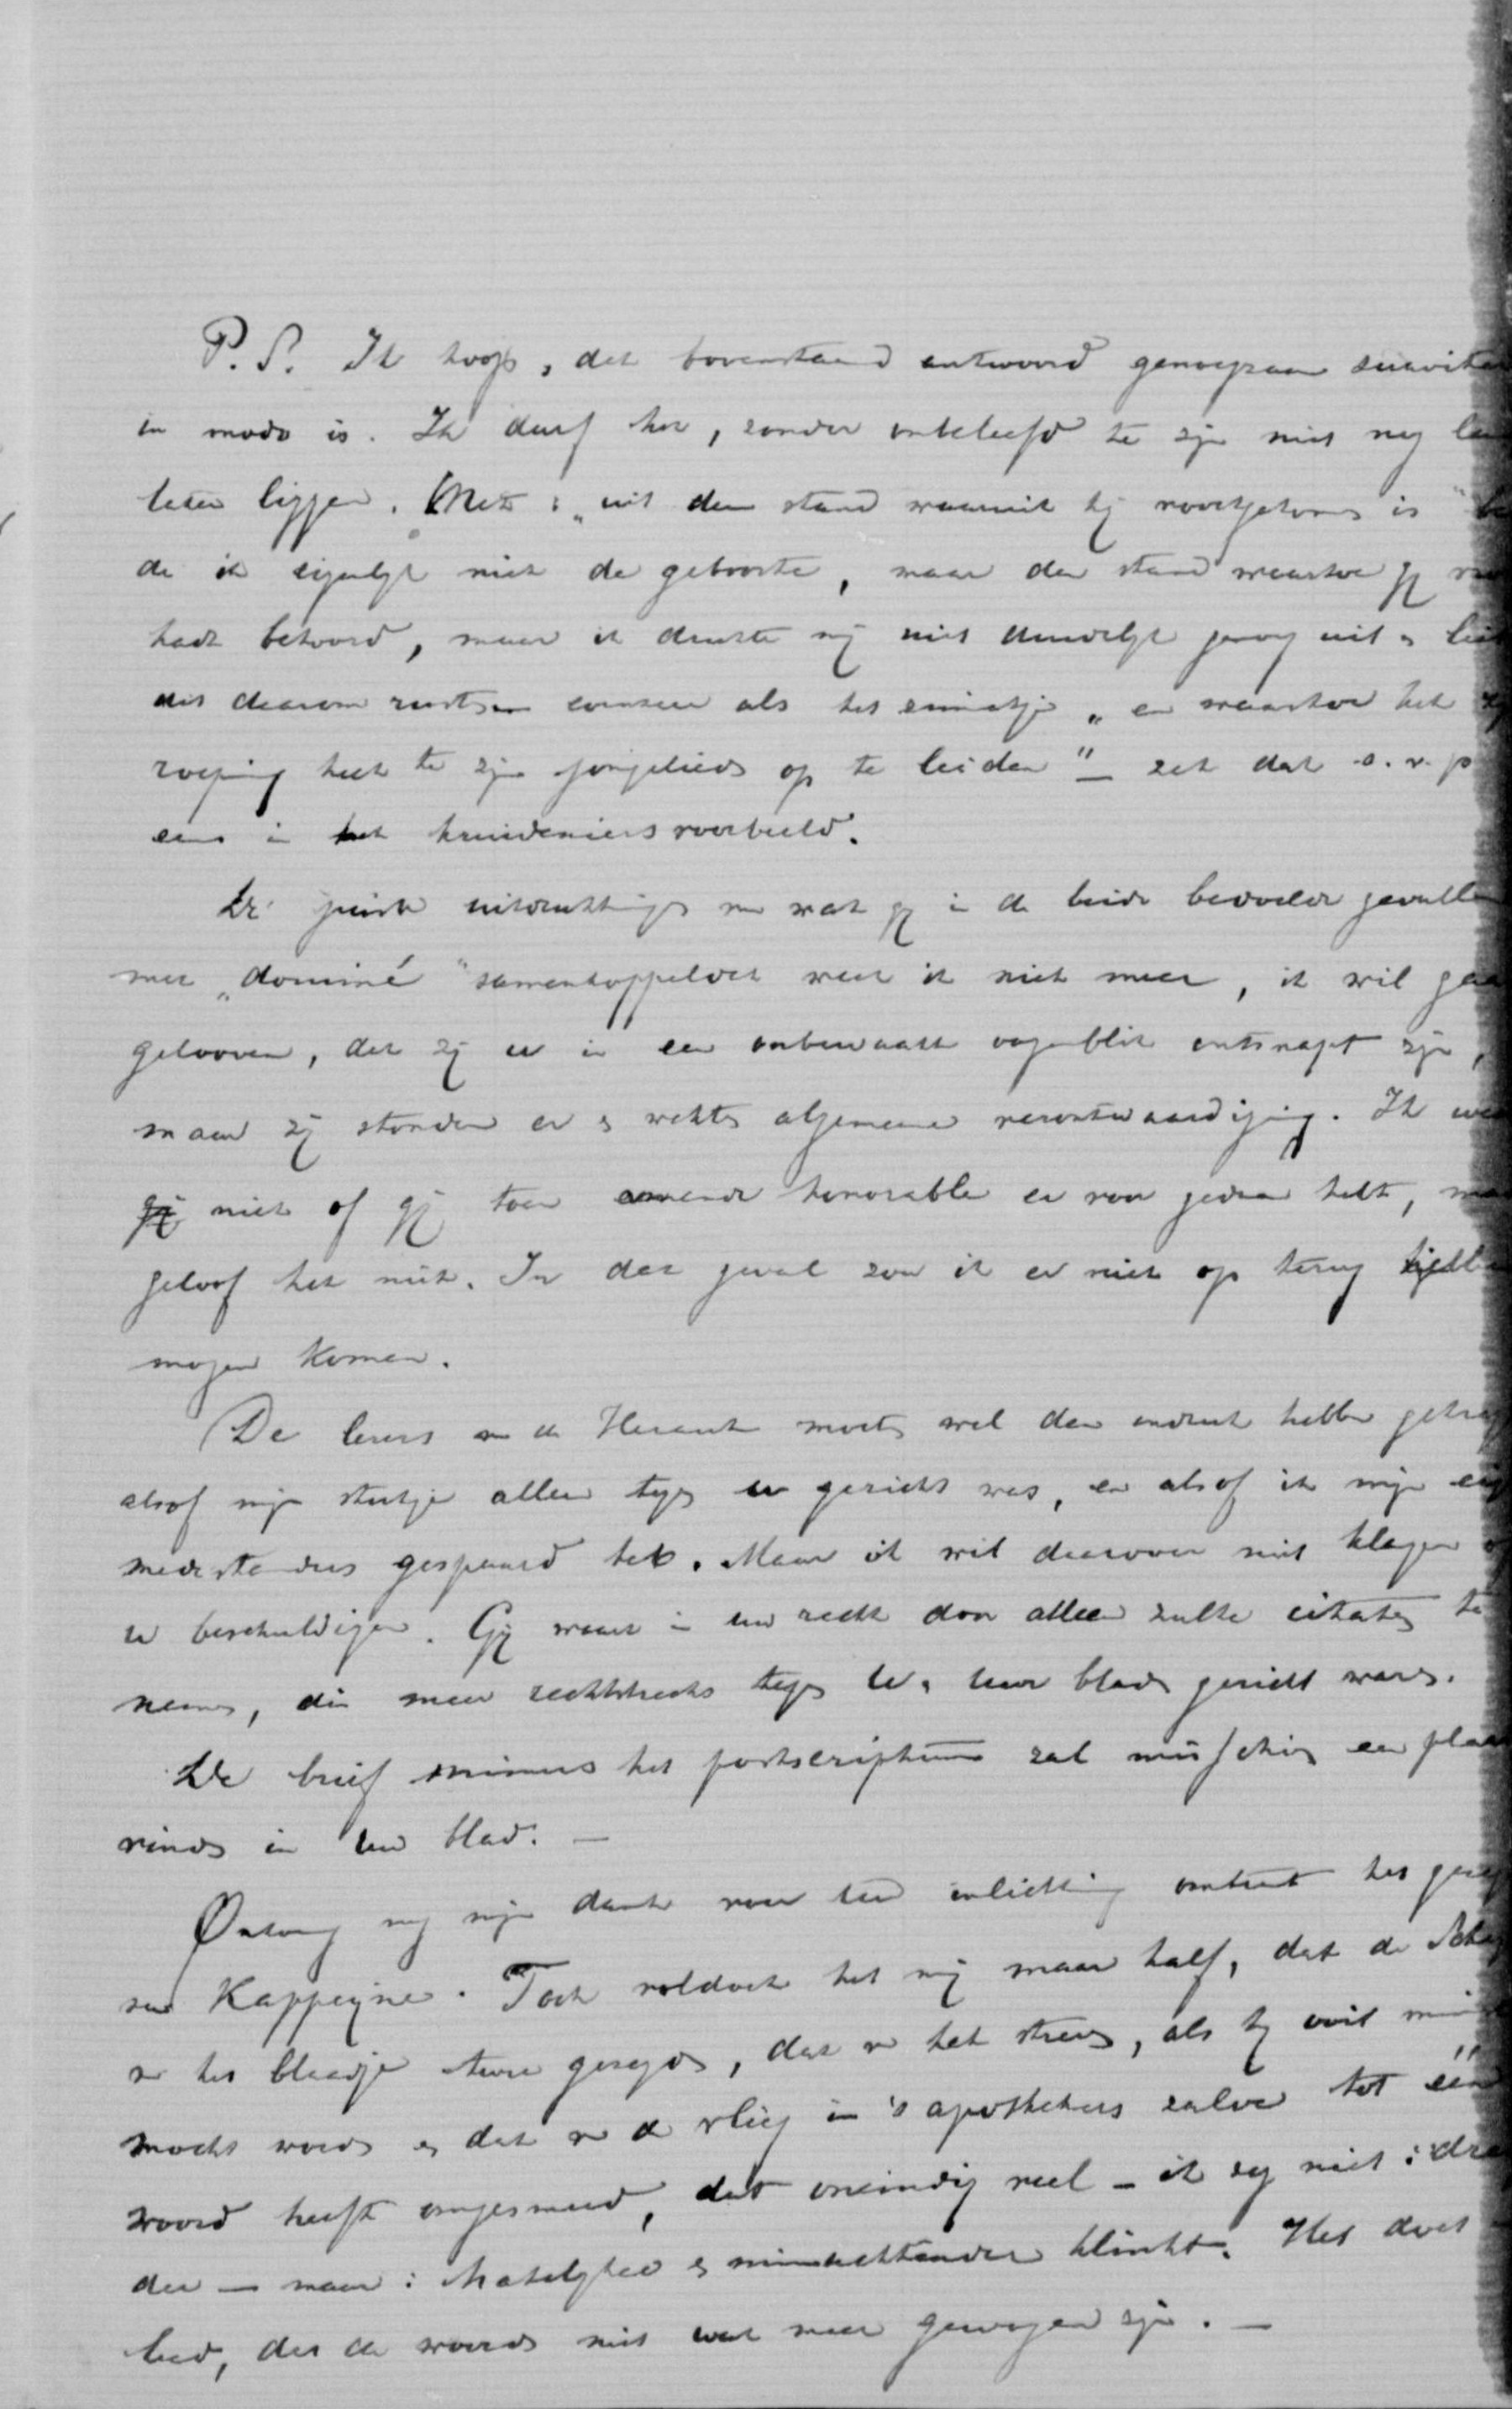 P.S. Ik hoop, dat bovenstaand antwoord genoegzaam suaviter
in modo is. Ik durf het, zonder onbeleefd te zijn niet nog
laten liggen. Met: „uit den stand waaruit hij voortgekomen is"
de ik eigenlijk niet de geboorte, maar den stand waartoe gij
hadt behoord, maar ik drukte mij niet duidelijk genoeg uit &
dit daarom evenzeer als het zinnetje „en waartoe het
roeping hect te zijn jongelieds op te leiden" – zet dat s.v.p.
eens in het kruideniersvoorbeeld.
De juiste uitdrukkingen van wat gij in de beide bedoelde gevallen
met „dominé" samenkoppeldet weet ik niet meer, ik wil
gelooven, dat zij u in een onbewaakt oogenblik ontsnapt zijn,
maar zij stonden er & wekten algemeene verontwaardiging. Ik
niet of gij toen amende honorable er voor gedaan hebt,
geloof het niet. In dat geval zou ik er niet op terug
mogen komen.
De lezers van de Heraut moeten wel den indruk hebben
alsof mijn stukje alleen tegen u gericht was, en alsof ik mijn
medestanders gespaard heb. Maar ik wil daarover niet klagen
u beschuldigen. Gij waart in uw recht door alleen zulke citaten te
nemen, die meer rechtstreeks tegen U & uw blad gericht waren.
De brief minus het postscriptum zal misschien een
vinden in uw blad. –
Ontvang nog mijn dank voor uw inlichting omtrent het
van Kappeyne. Toch voldoet het mij maar half, dat de
van het blaadje twee gezegden, dat van het steenen, als hij ooit
mocht worden & dat van de vlieg in 's apothekers zalve tot één
woord heeft omgesmeed, dat oneindig veel – ik zeg niet:
der – maar: hatelijker & minachtender klinkt. Het doet
leed, dat de woorden niet wat meer gewogen zijn. –